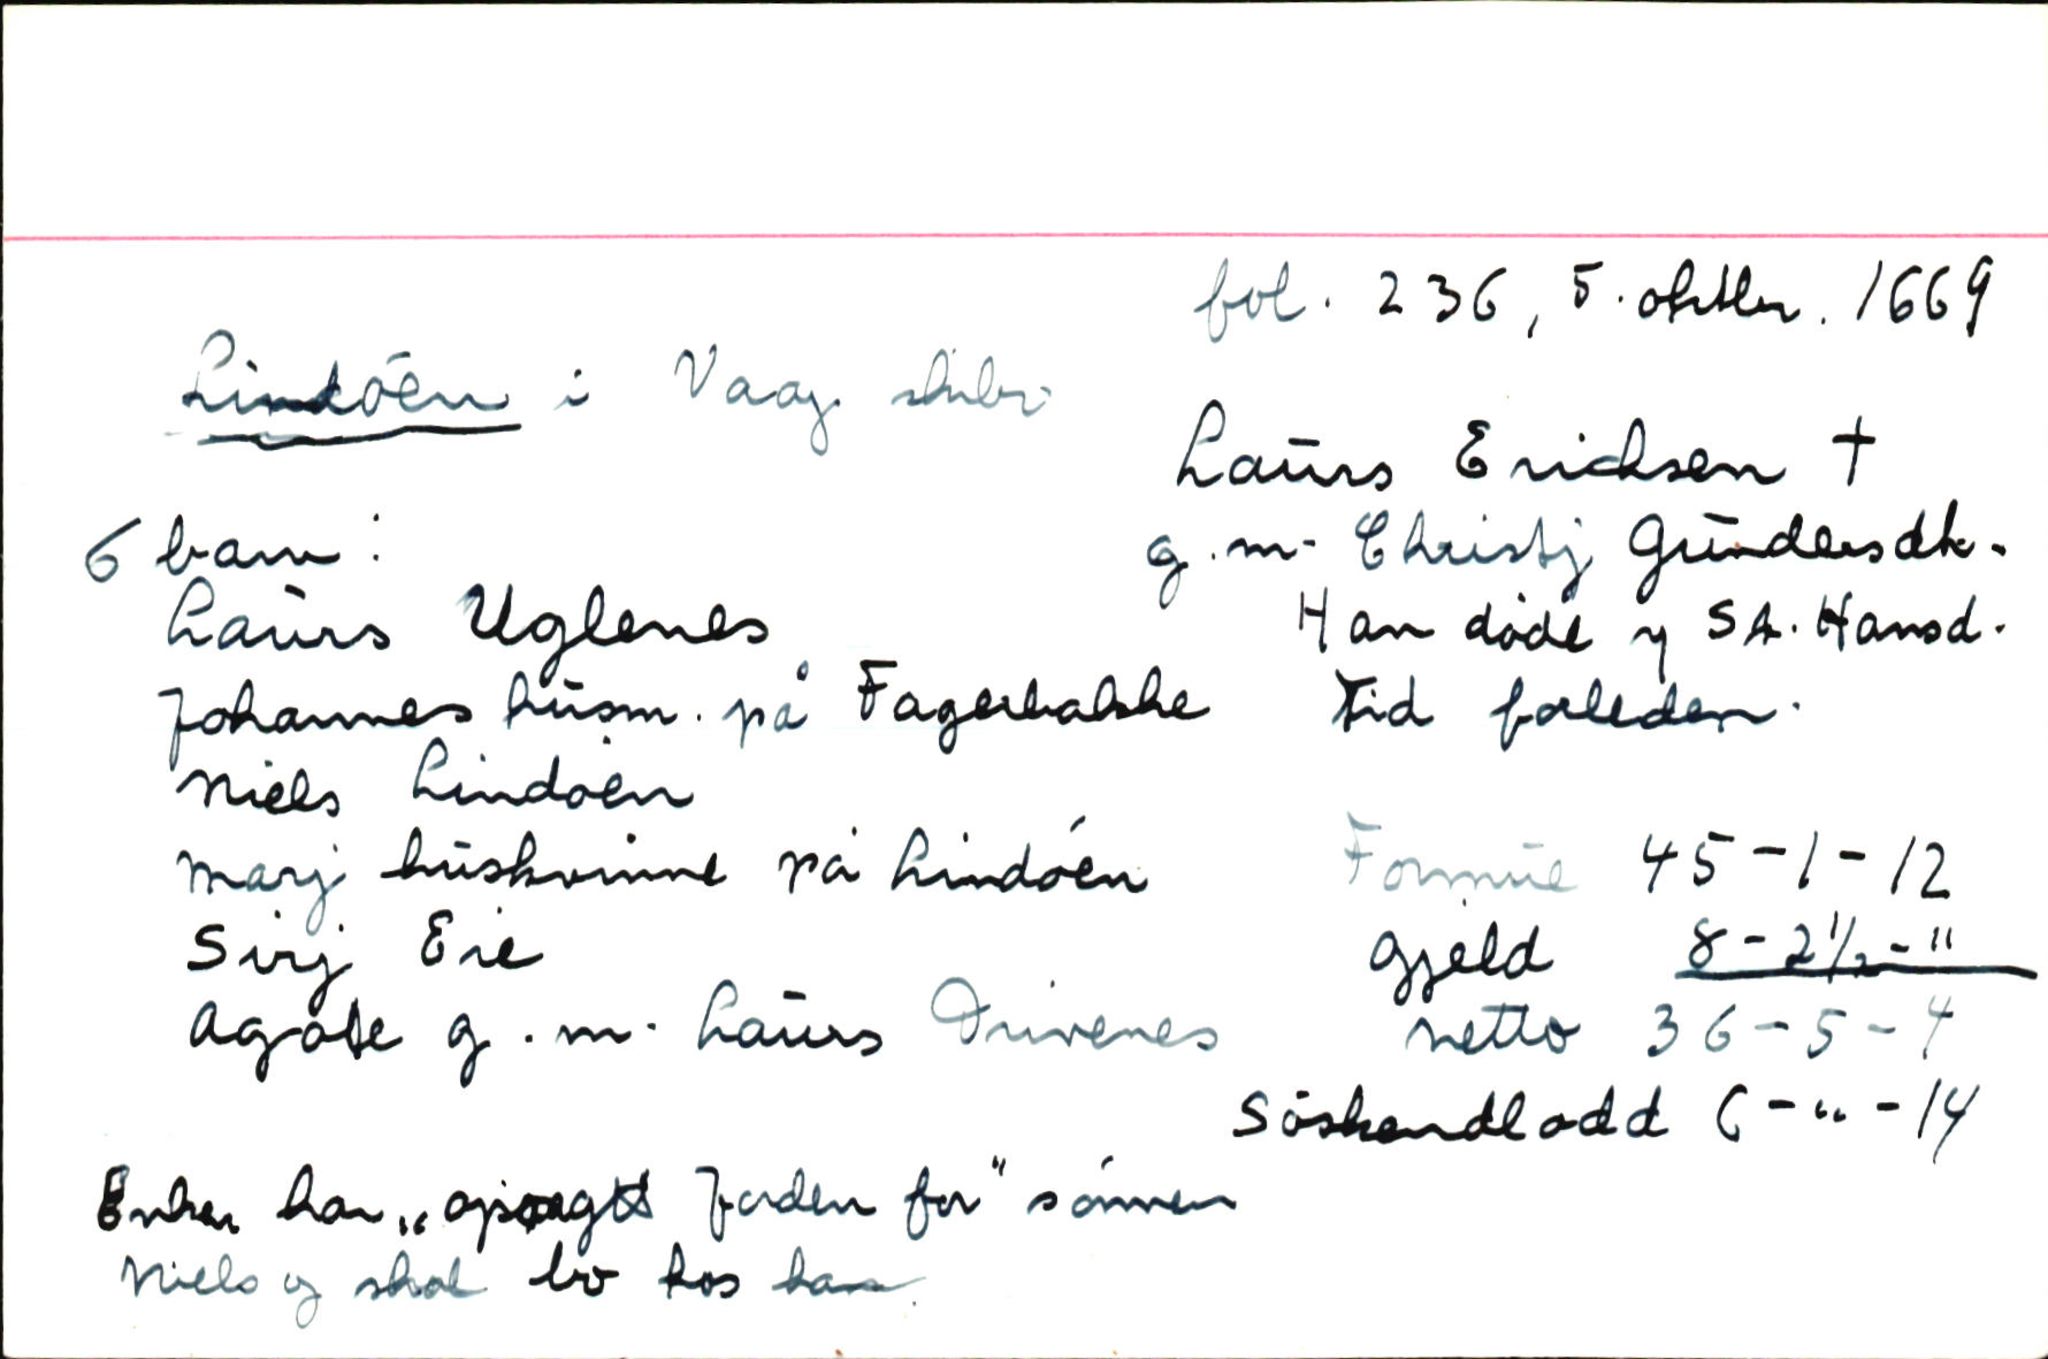 fol. 236, 5. oktbr. 1669
Lindöen i Vaag skibr.
Laurs Ericksen †
g.m. Christj Gundersdtr.
Han döde y St. Hansd.
tid forleden.
6 barn:
Laurs Uglenes
Johannes husm. på Fagerbakke
Niels Lindöen
Marj huskvinne på Lindöen
Sirj Eie
Agate g.m. Laurs Drivenes
Formue 45-1-12
Gjeld 8-2½-"
netto 36-5-4
Söskendlodd 6-"-14
Enken har „opsagt Jorden for" sönnen
Niels og skal bo hos ham.